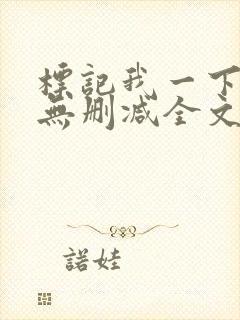 標記我一下
無删减全文
諾娃